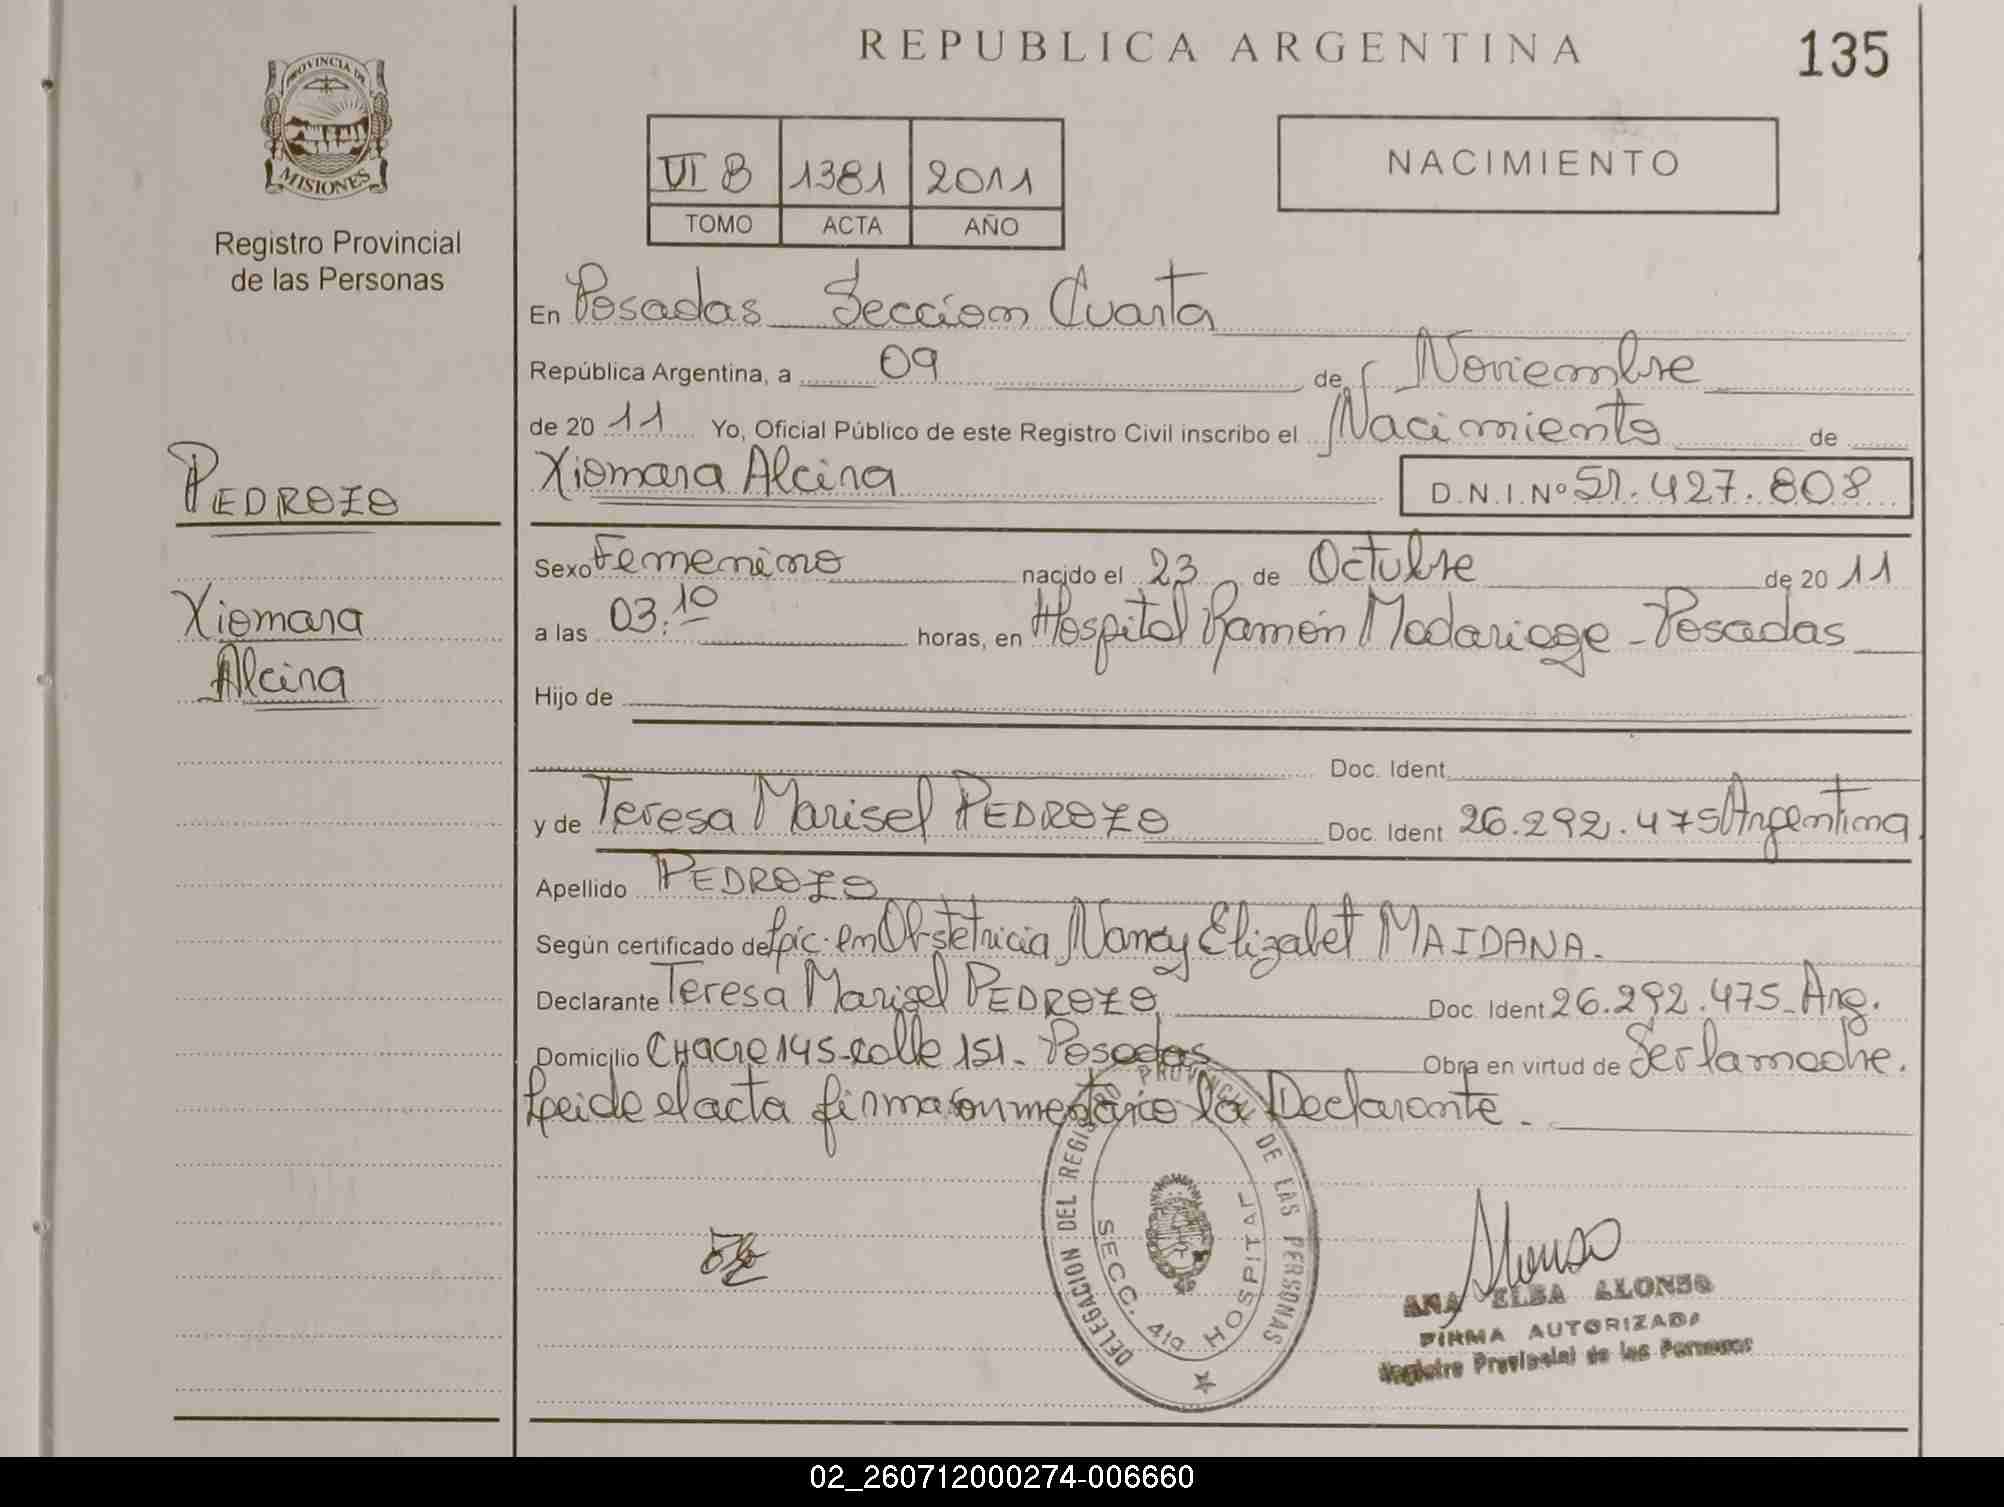 REPUBLICA ARGENTINA
135
PROVINCIA DE
MISIONES
Registro Provincial
de las Personas
VI B 1381 2011
TOMO ACTA AÑO
NACIMIENTO
En Posadas Seccion Cuarta
República Argentina, a 09 de Noviembre
de 2011 Yo, Oficial Público de este Registro Civil inscribo el Nacimiento de
Xiomara Alcira D.N.I.Nº 51.427.808
PEDROZO
Xiomara
Alcira
Sexo Femenino nacido el 23 de Octubre de 2011
a las 03:10 horas, en Hospital Ramón Madariaga - Posadas
Hijo de
Doc. Ident.
y de Teresa Marisel PEDROZO Doc. Ident 26.292.475 Argentina
Apellido PEDROZO
Según certificado de Lic. en Obstetricia Nancy Elizabet MAIDANA.
Declarante Teresa Marisel PEDROZO Doc. Ident 26.292.475 - Arg.
Domicilio CHacra 145 - calle 151 - Posadas Obra en virtud de Ser la madre.
Leida el acta firma con mentario la Declarante.
DELEGACION DEL REGISTRO PROVINCIAL DE LAS PERSONAS
SECC. 4ta HOSPITAL
ANA ELBA ALONSO
FIRMA AUTORIZADA
Registro Provincial de las Personas
02_260712000274-006660